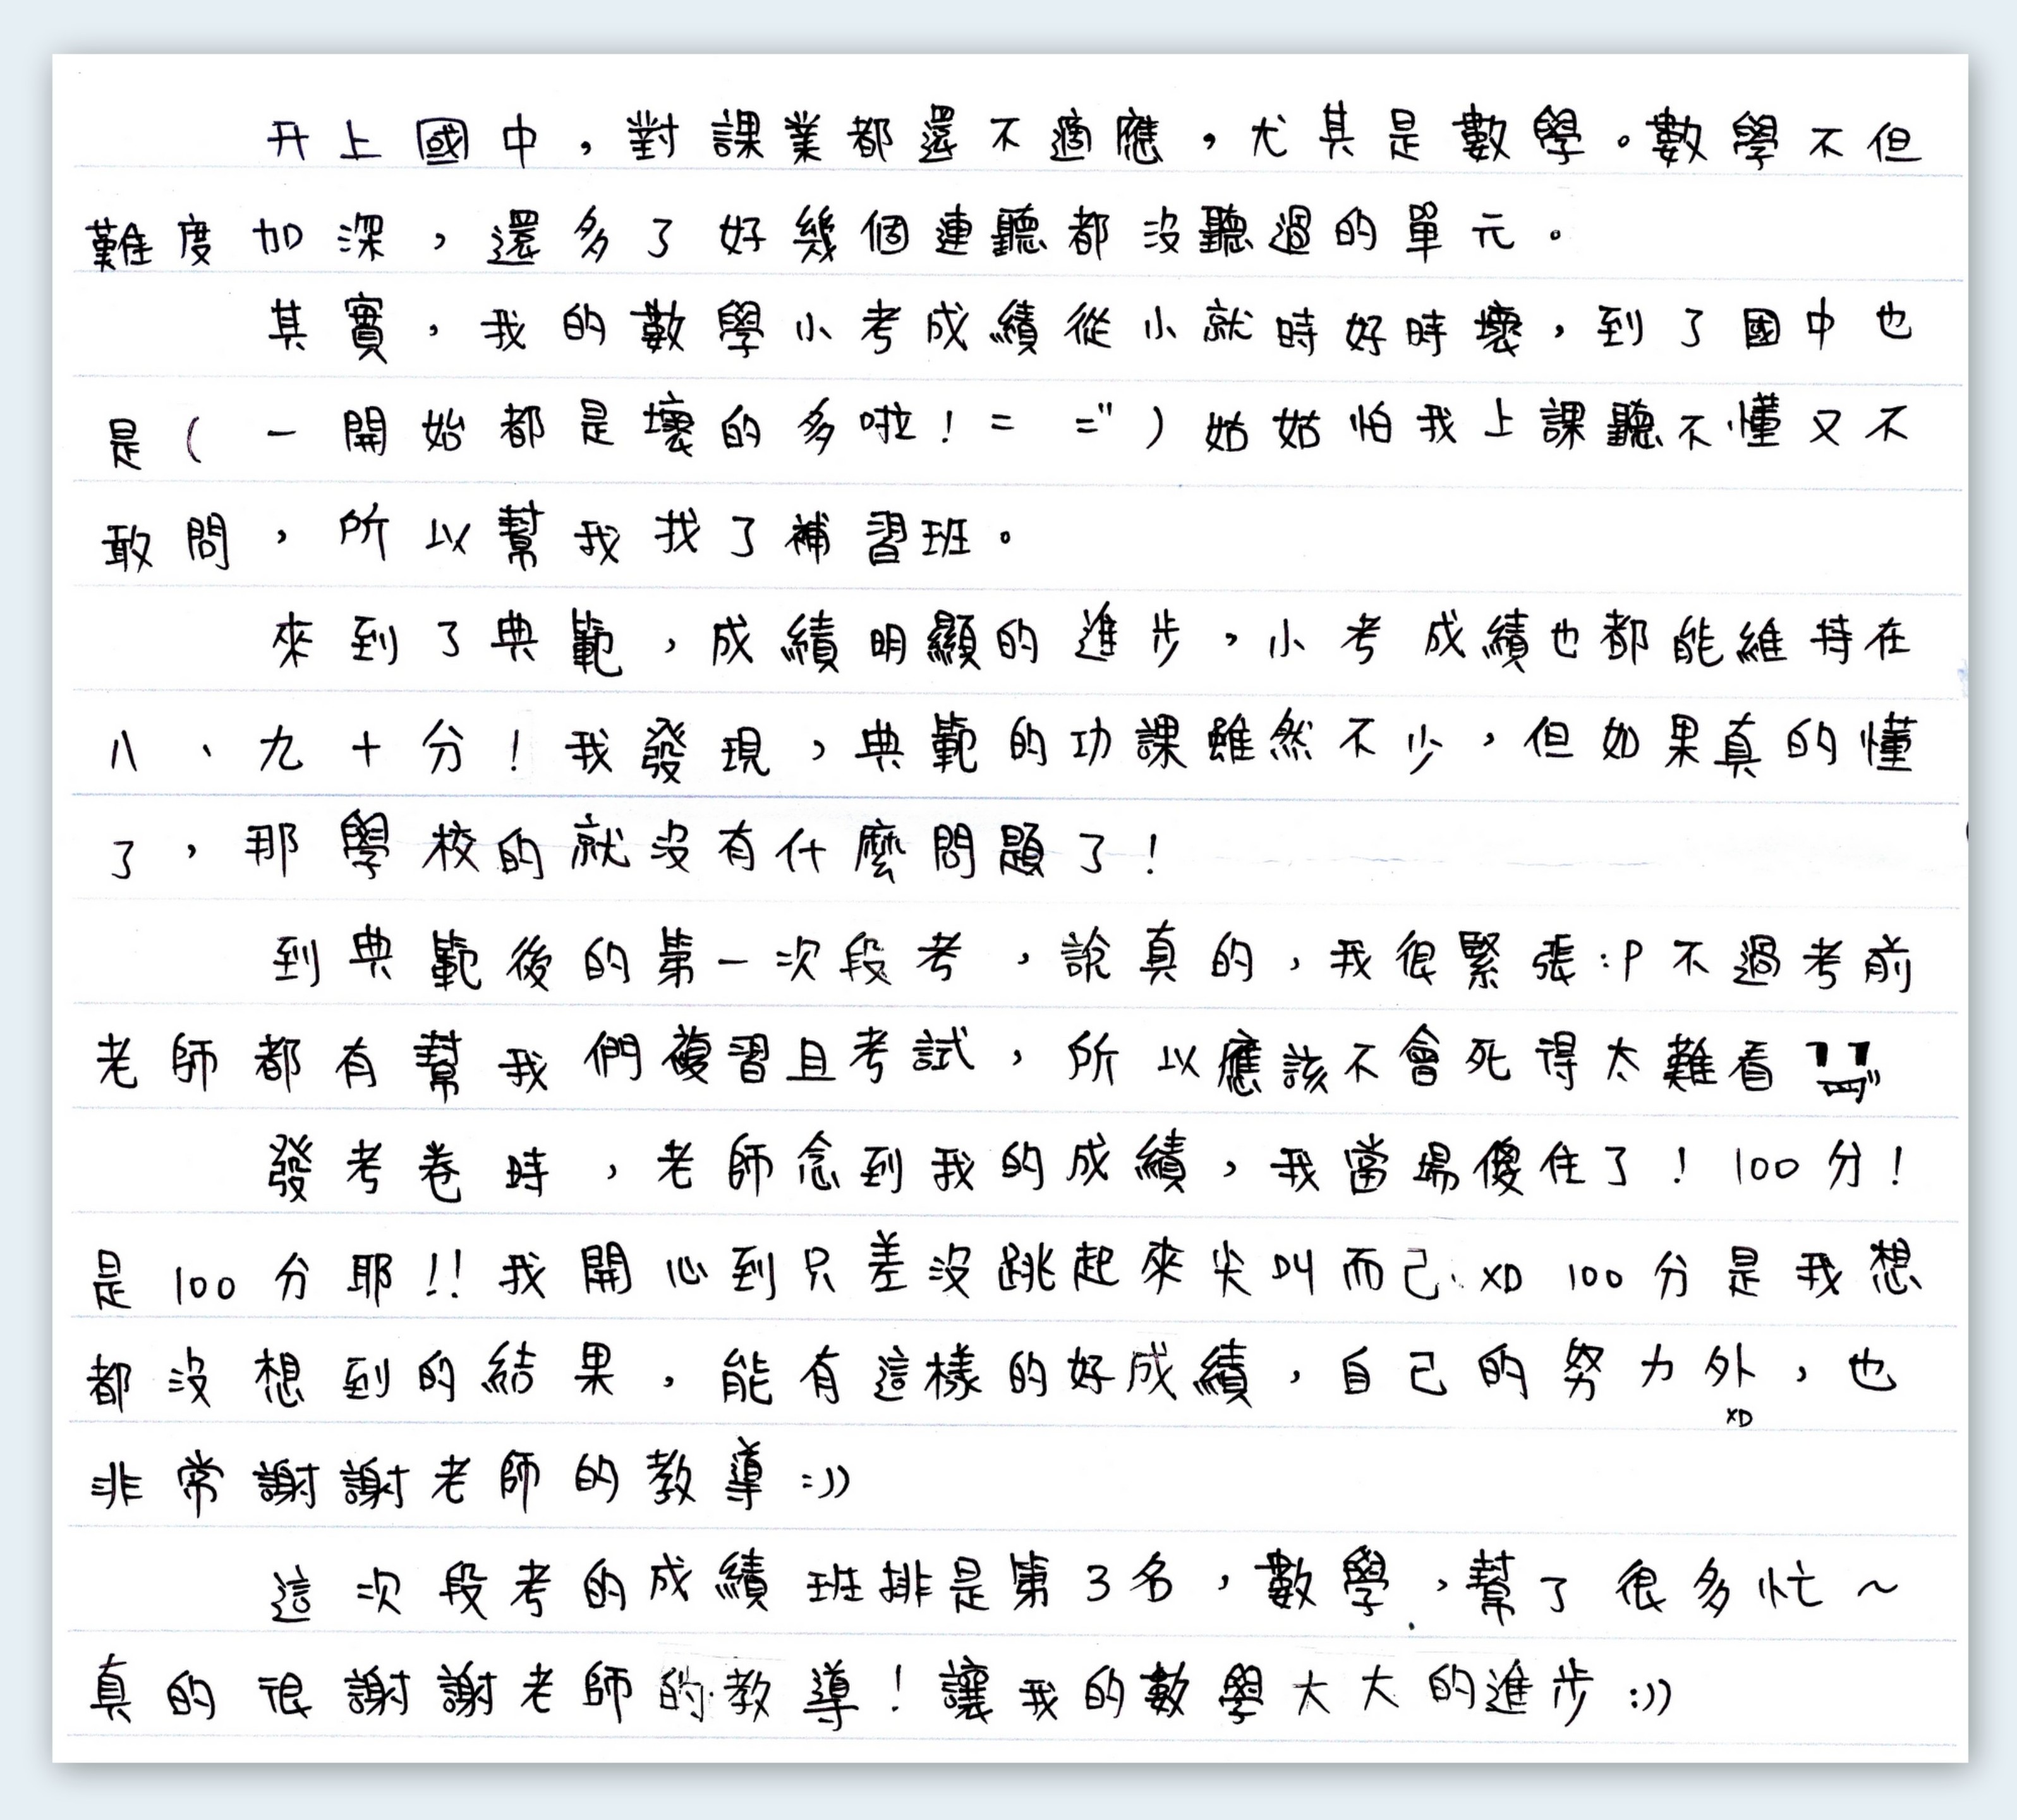 升上國中，對課業都還不適應，尤其是數學。數學不但
難度加深，還多了好幾個連聽都沒聽過的單元。
其實，我的數學小考成績從小就時好時壞，到了國中也
是（一開始都是壞的多啦！= ="）姑姑怕我上課聽不懂又不
敢問，所以幫我找了補習班。
來到了典範，成績明顯的進步，小考成績也都能維持在
八、九十分！我發現，典範的功課雖然不少，但如果真的懂
了，那學校的就沒有什麼問題了！
到典範後的第一次段考，說真的，我很緊張:P不過考前
老師都有幫我們複習且考試，所以應該不會死得太難看
發考卷時，老師念到我的成績，我當場傻住了！100分！
是100分耶!!我開心到只差沒跳起來尖叫而已.XD 100分是我想
都沒想到的結果，能有這樣的好成績，自己的努力外，也
XD
非常謝謝老師的教導:))
這次段考的成績班排是第3名，數學，幫了很多忙～
真的很謝謝老師的教導！讓我的數學大大的進步:))